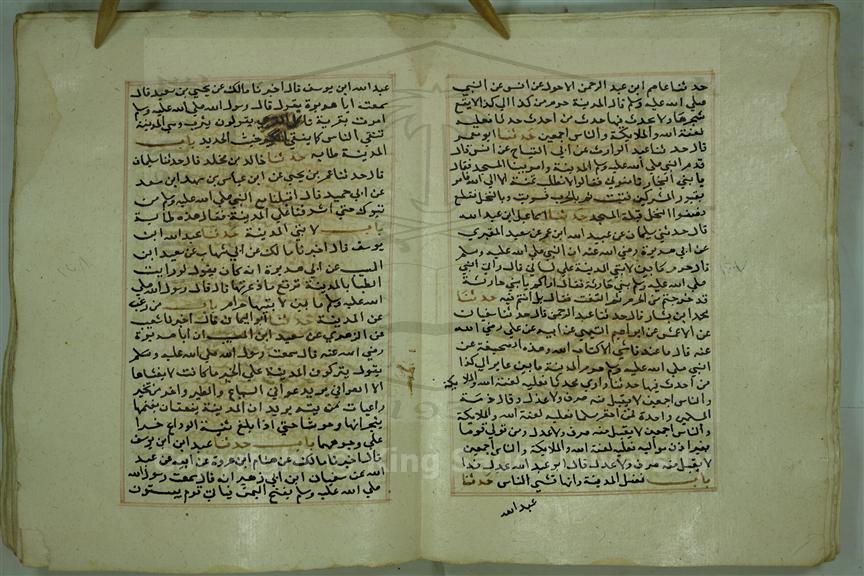 حدثنا عاصم ابن عبد الرحمن الاحول عن انس عن النبي
صلي الله عليه وسلم قال المدينة حرم من كذا الي كذا لا يقطع
شجرها ولا يحدث فيها حدث من احدث حدثا فعليه
لعنة الله والملايكة والناس اجمعين حدثنا ابو معمر
قال حدثنا عبد الوارث عن ابي التياح عن انس قال
قدم النبي صلي الله عليه وسلم المدينة وامر ببنا المسجد فقال
يا بني النجار ثامنوني فقالوا لا نطلب ثمنه الا الي الله فامر
بقبور المشركين فنبشت ثم بالخرب فسويت وبالنخل فقطع
فصفوا النخل قبلة المسجد حدثنا اسماعيل ابن عبد الله
قال حدثني سليمان عن عبيد الله ابن عمر عن سعيد المقبري
عن ابي هريرة رضي الله عنه ان النبي صلي الله عليه وسلم
قال حرم ما بين لابتي المدينة علي لساني قال واتي النبي
صلي الله عليه وسلم بني حارثة فقال اراكم يا بني حارثة
قد خرجتم من الحرم ثم التفت فقال بل انتم فيه حدثنا
محمد ابن بشار قال حدثنا عبد الرحمن قال حدثنا سفيان
عن الاعمش عن ابراهيم التيمي عن ابيه عن علي رضي الله
عنه قال ما عندنا شي الا كتاب الله وهذه الصحيفة عن
النبي صلي الله عليه وسلم حرم المدينة ما بين عاير الي كذا
من احدث فيها حدثا او اوي محدثا فعليه لعنة الله والملايكة
والناس اجمعين لا يقبل منه صرف ولا عدل وقال ذمة
المسلمين واحدة فمن اخفر مسلما فعليه لعنة الله والملايكة
والناس اجمعين لا يقبل منه صرف ولا عدل ومن تولي قوما
بغير اذن مواليه فعليه لعنة الله والملايكة والناس اجمعين
لا يقبل منه صرف ولا عدل قال ابو عبد الله عدل فدا
باب فضل المدينة وانها تنفي الناس حدثنا
عبد الله
عبد الله ابن يوسف قال اخبرنا مالك عن يحيي بن سعيد قال
سمعت ابا هريرة يقول قال رسول الله صلي الله عليه وسلم
امرت بقرية تاكل القري يقولون يثرب وهي المدينة
تنفي الناس كما ينفي الكير خبث الحديد باب
المدينة طابه حدثنا خالد بن مخلد قال حدثنا سليمان
قال حدثنا عمر بن يحيي عن ابن عباس بن سهل ابن سعد
عن ابي حميد قال اقبلنا مع النبي صلي الله عليه وسلم من
تبوك حتي اشرفنا علي المدينة فقال هذه طابة
باب لابتي المدينة حدثنا عبد الله ابن
يوسف قال اخبرنا مالك عن ابي شهاب عن سعيد ابن
المسيب عن ابي هريرة انه كان يقول لو رايت
الظبا بالمدينة ترتع ما ذعرتها قال قال رسول الله صلي
الله عليه وسلم ما بين لابتيها حرام باب من رغب
عن المدينة حدثنا ابو اليمان قال اخبرنا شعيب
عن الزهري عن سعيد ابن المسيب ان ابا هريرة
رضي الله عنه قال سمعت رسول الله صلي الله عليه وسلم
يقول يتركون المدينة علي الخير ما كانت لا يغشاها
الا العوافي يريد عوافي السباع والطير واخر من يحشر
راعيان من مزينه يريدان المدينة ينعقان بغنمهما
فيجدانها وحوشا حتي اذا بلغا ثنية الوداع خرا
علي وجوههما باب حدثنا عبد الله ابن يوسف
قال اخبرنا مالك عن هشام ابن عروة عن ابيه عن عبد
الله عن سفيان ابن ابي زهير انه قال سمعت رسول الله
صلي الله عليه وسلم يفتح اليمن فياتي قوم يبسون